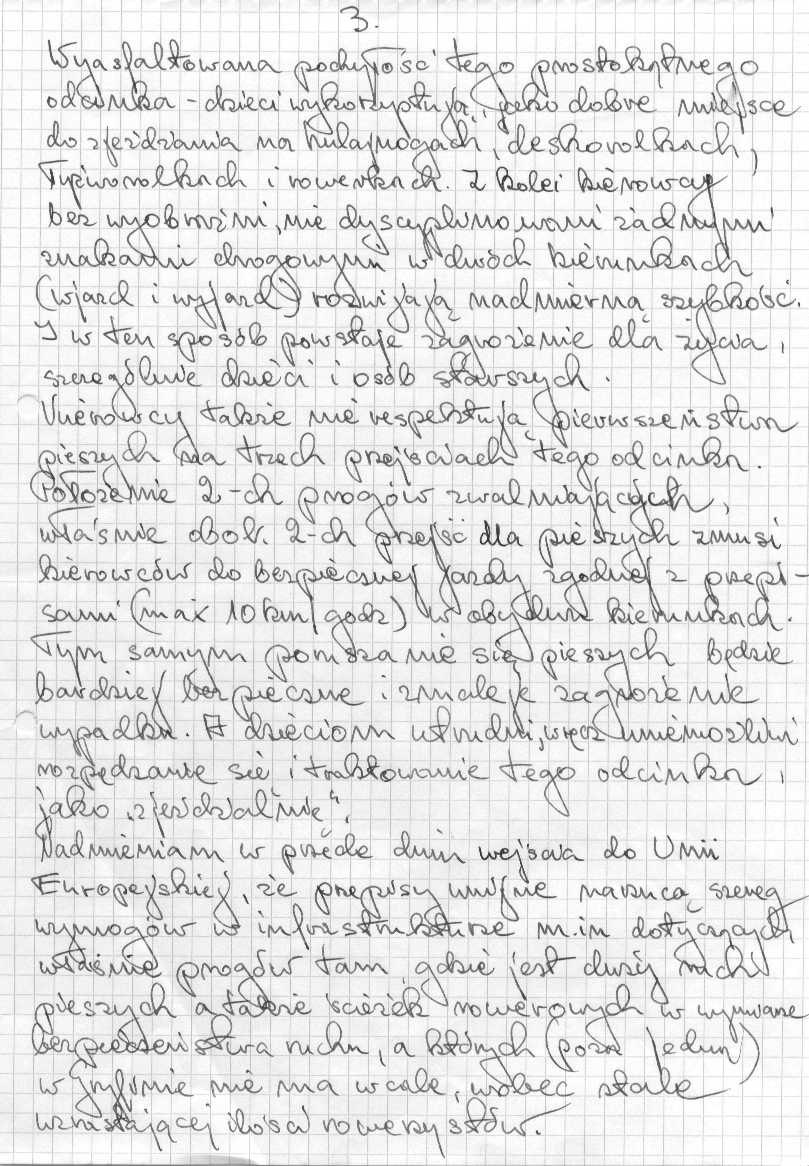 3.
Wyasfaltowana pochyłość tego prostokątnego
odcinka - dzieci wykorzystują, jako dobre miejsce
do zjeżdżania na hulajnogach, deskorolkach,
łyżworolkach i rowerkach. Z kolei kierowcy
bez wyobraźni, nie dyscyplinowani żadnymi
znakami drogowymi w dwóch kierunkach
(wjazd i wyjazd) rozwijają nadmierną szybkość.
I w ten sposób powstaje zagrożenie dla życia,
szczególnie dzieci i osób starszych.
Kierowcy także nie respektują pierwszeństwa
pieszych na trzech przejściach tego odcinka.
Położenie 2-ch progów zwalniających,
właśnie obok 2-ch przejść dla pieszych zmusi
kierowców do bezpiecznej jazdy zgodnej z przepi-
sami (max 10 km/godz) w obydwu kierunkach.
Tym samym poruszanie się pieszych będzie
bardziej bezpieczne i zmaleje zagrożenie
wypadku. A dzieciom utrudni, wręcz uniemożliwi
rozpędzanie się i traktowanie tego odcinka,
jako „zjeżdżalnię".
Nadmieniam w przede dniu wejścia do Unii
Europejskiej, że przepisy unijne narzucą szereg
wymogów w infrastrukturze m.in dotyczących
właśnie progów tam, gdzie jest duży ruch
pieszych a także ścieżek rowerowych w
bezpieczeństwa ruchu, a których (poza jedną)
w Gryfinie nie ma wcale, wobec stale
wzrastającej ilości rowerzystów.